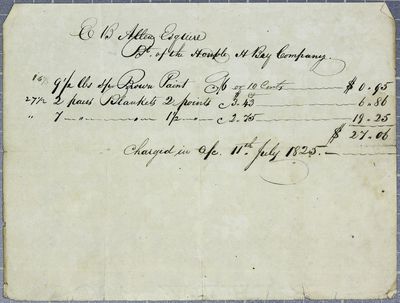 E B Allen Esquire
Bt. of the Honble H Bay Company
9½ lbs Sp. Brown Paint @ 10 Cents $ 0.95
27½ 2 pairs Blankets 2 points @ 3.43 6.86
" 7 " " 1½ " @ 2.75 19.25
$ 27.06
Charged in a/c. 11th July 1825.